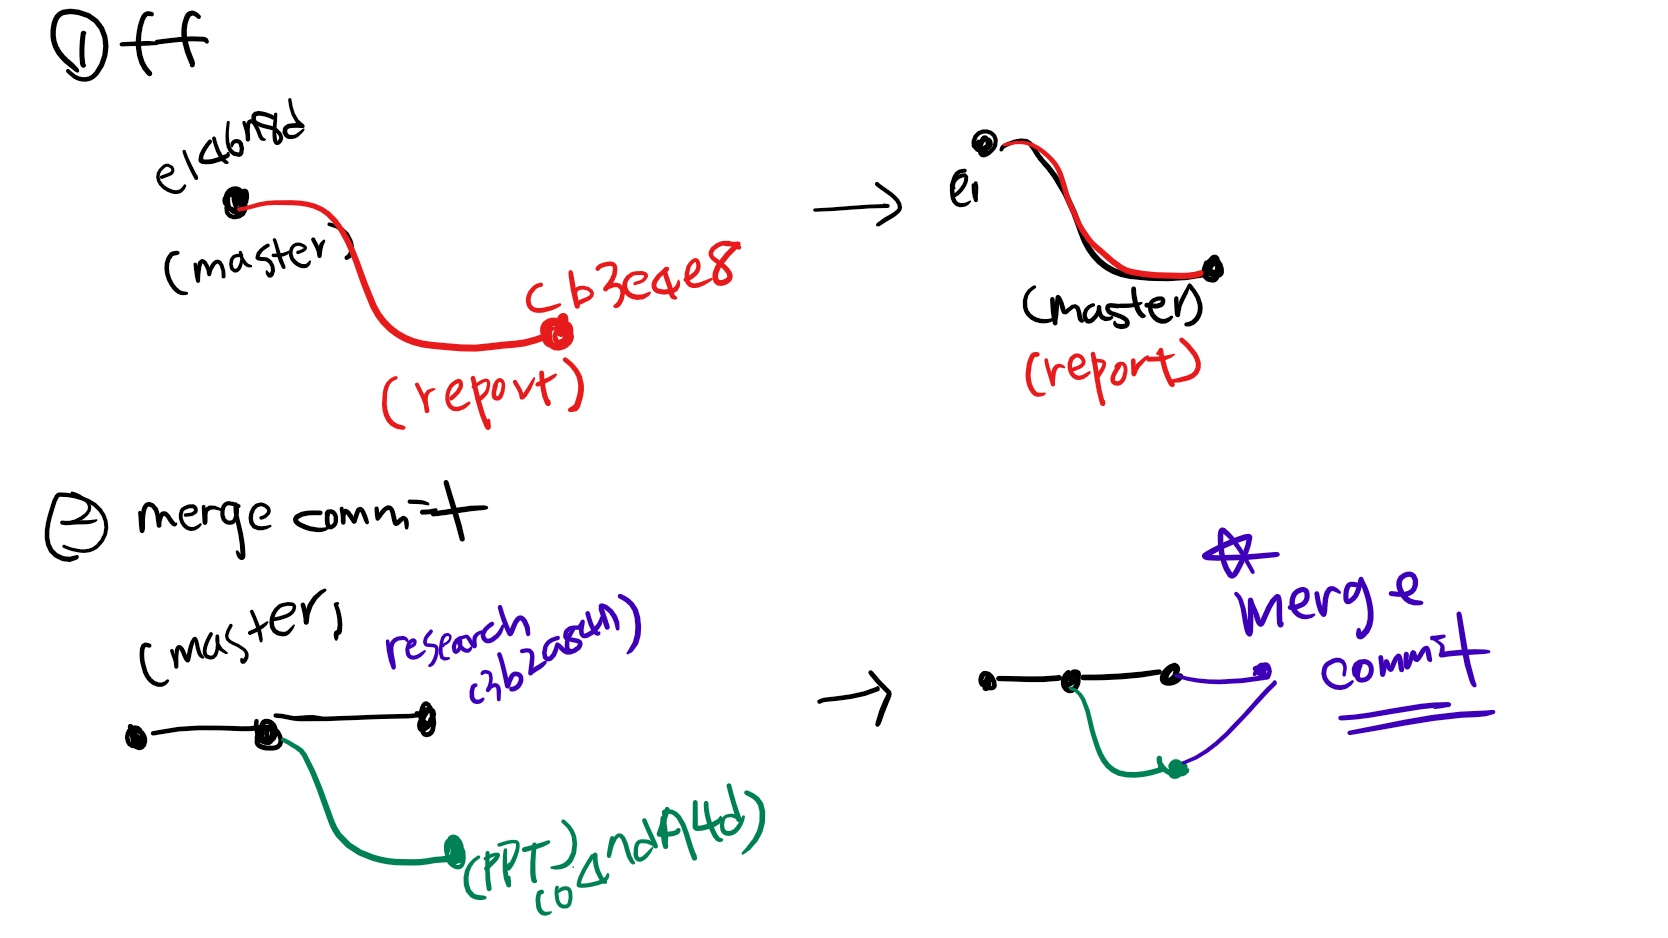 ① ff
e14bn8d
(master)
cb3e4e8
(report)
e1
(master)
(report)
② merge commit
(master)
research
c3b2as4n)
(PPT)
merge
commit